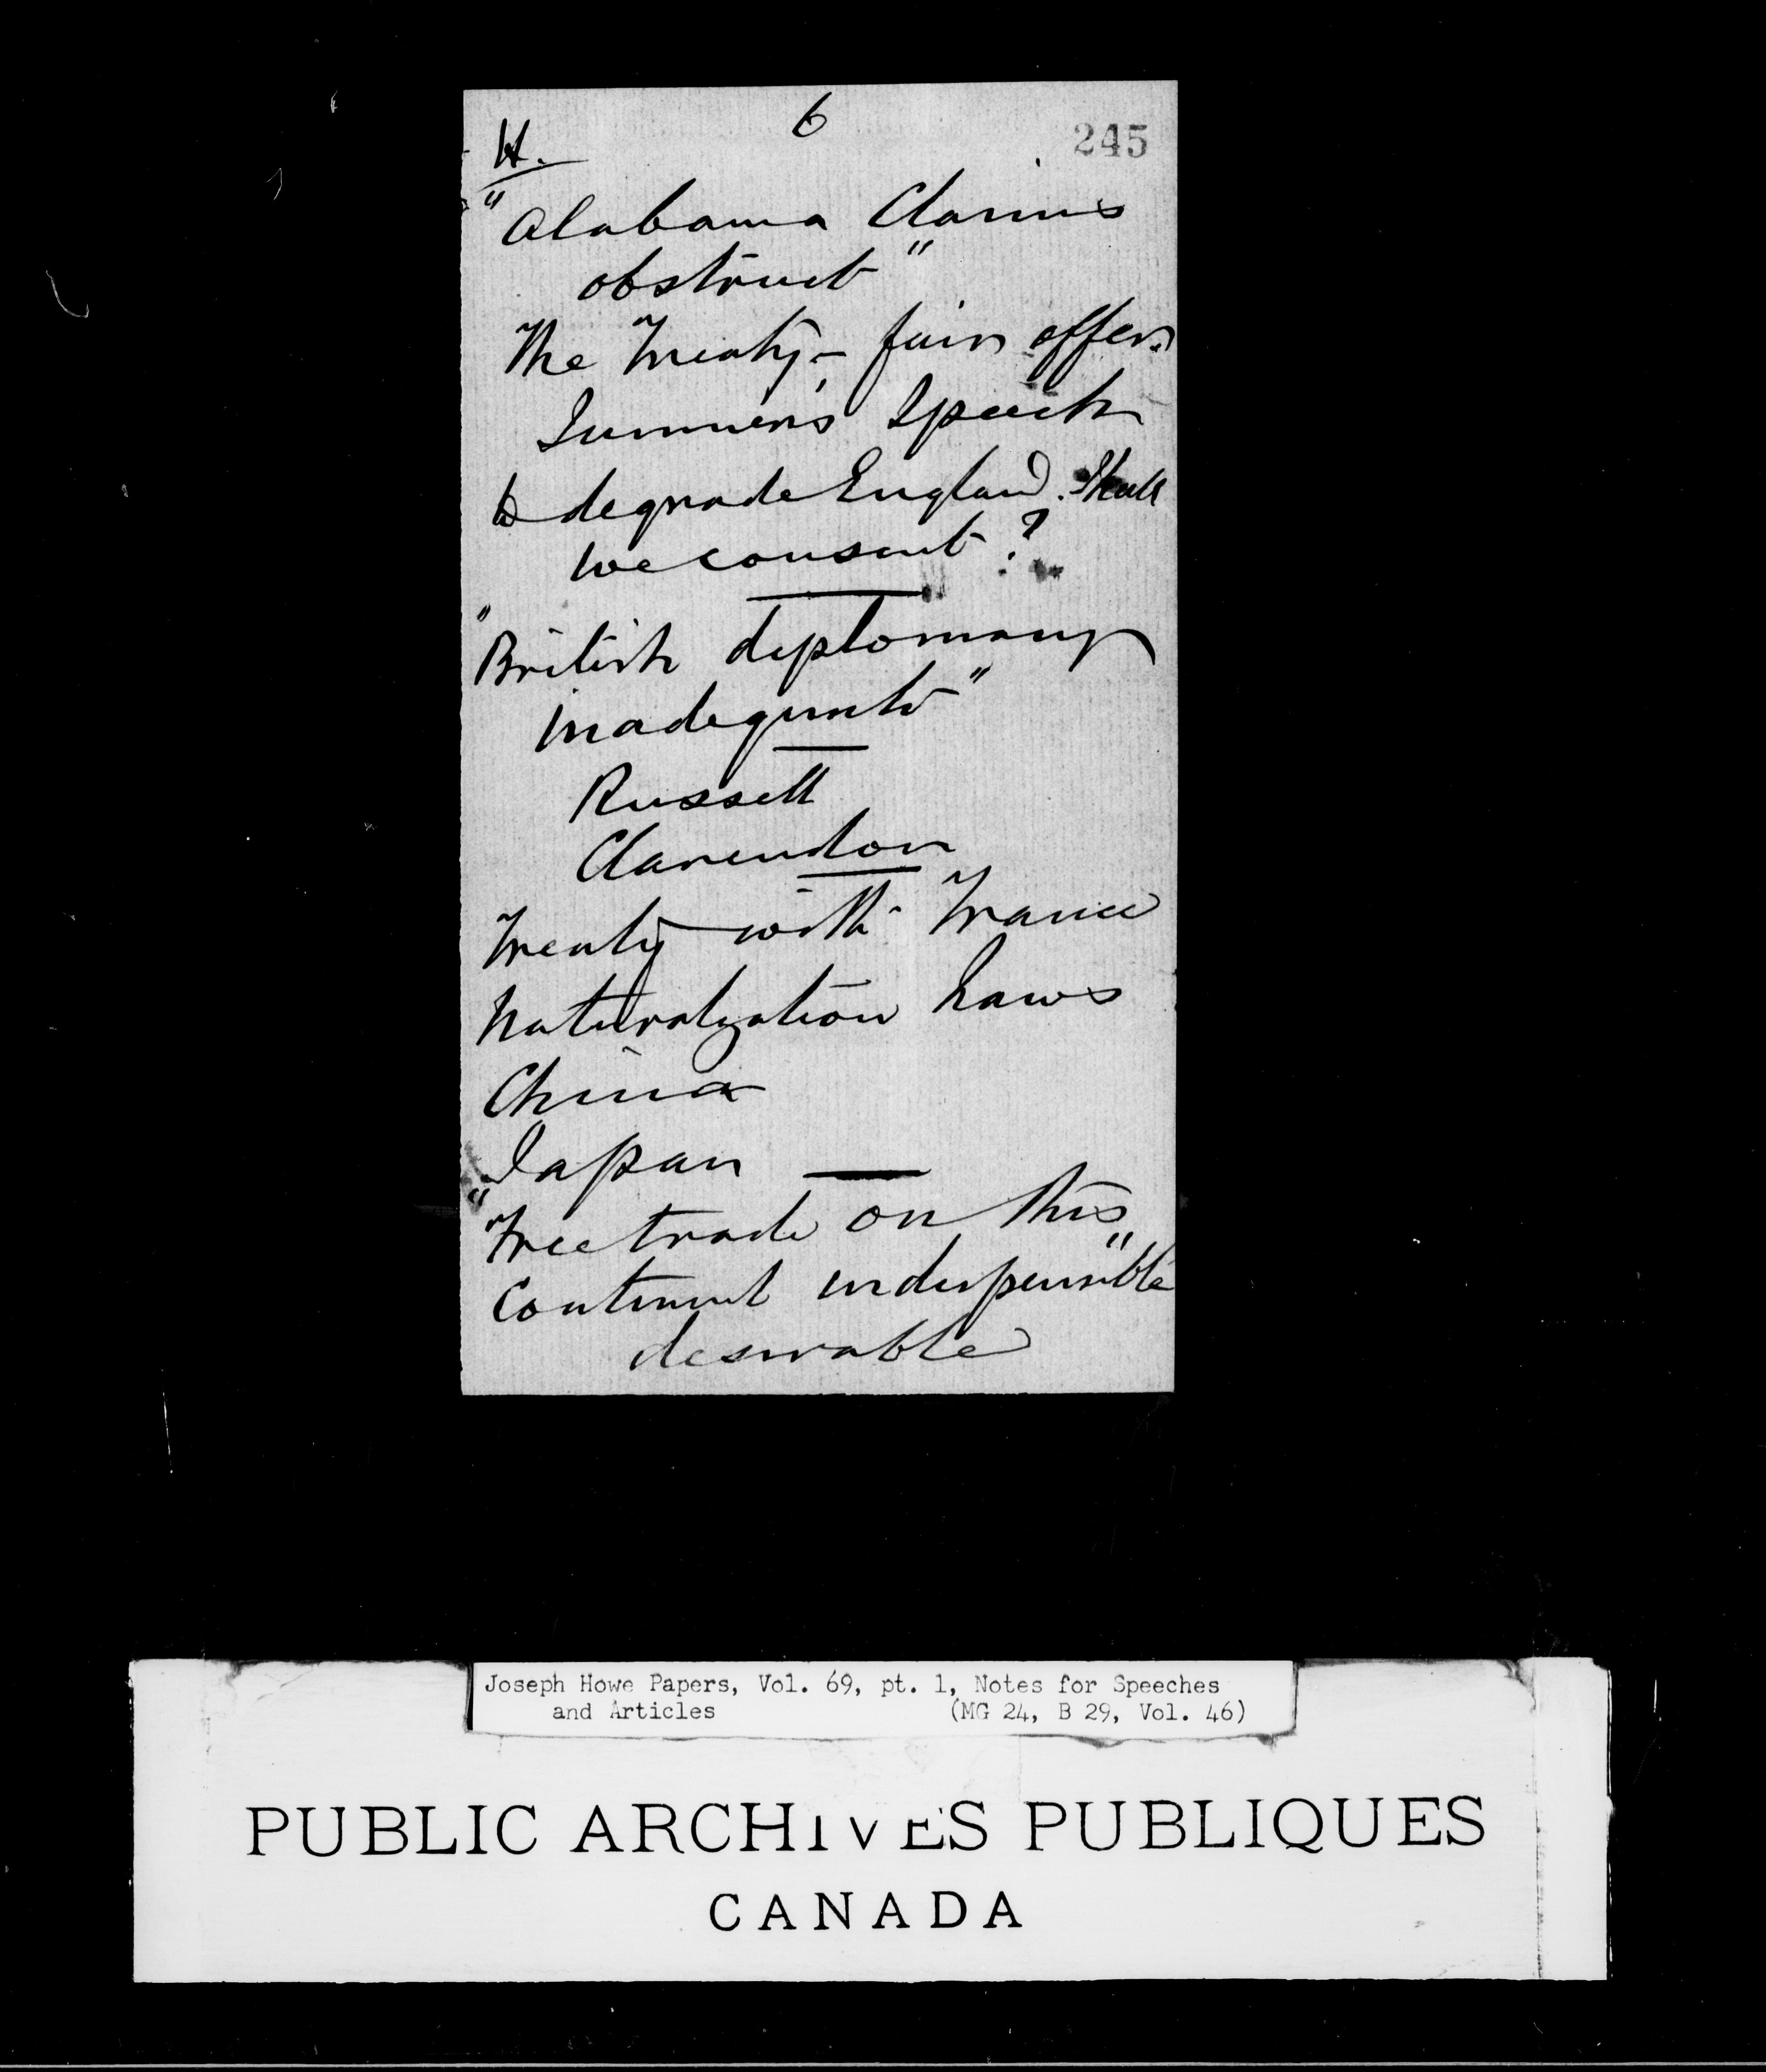 6
245
H.
"Alabama Claims
obstruct"
The Treaty - fair offer.
Sumner's Speech
to degrade England. Shall
we consent?
"British diplomacy
inadequate"
Russell
Clarendon
Treaty with France
Naturalization Laws
China
Japan —
"Free trade on this
Continent indispensible"
desirable
Joseph Howe Papers, Vol. 69, pt. 1, Notes for Speeches
and Articles (MG 24, B 29, Vol. 46)
PUBLIC ARCHIVES PUBLIQUES
CANADA